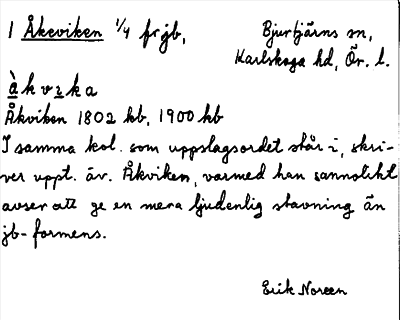 1 Åkeviken 1/4 frjb, Bjurtjärns sn,
Karlskoga hd, Ör. l.
å̀kvika
Åkviken 1802 kb, 1900 kb
I samma kol. som uppslagsordet står i, skri-
ver uppt. äv. Åkviken, varmed han sannolikt
avser att ge en mera ljudenlig stavning än
jb-formens.
Erik Noreen